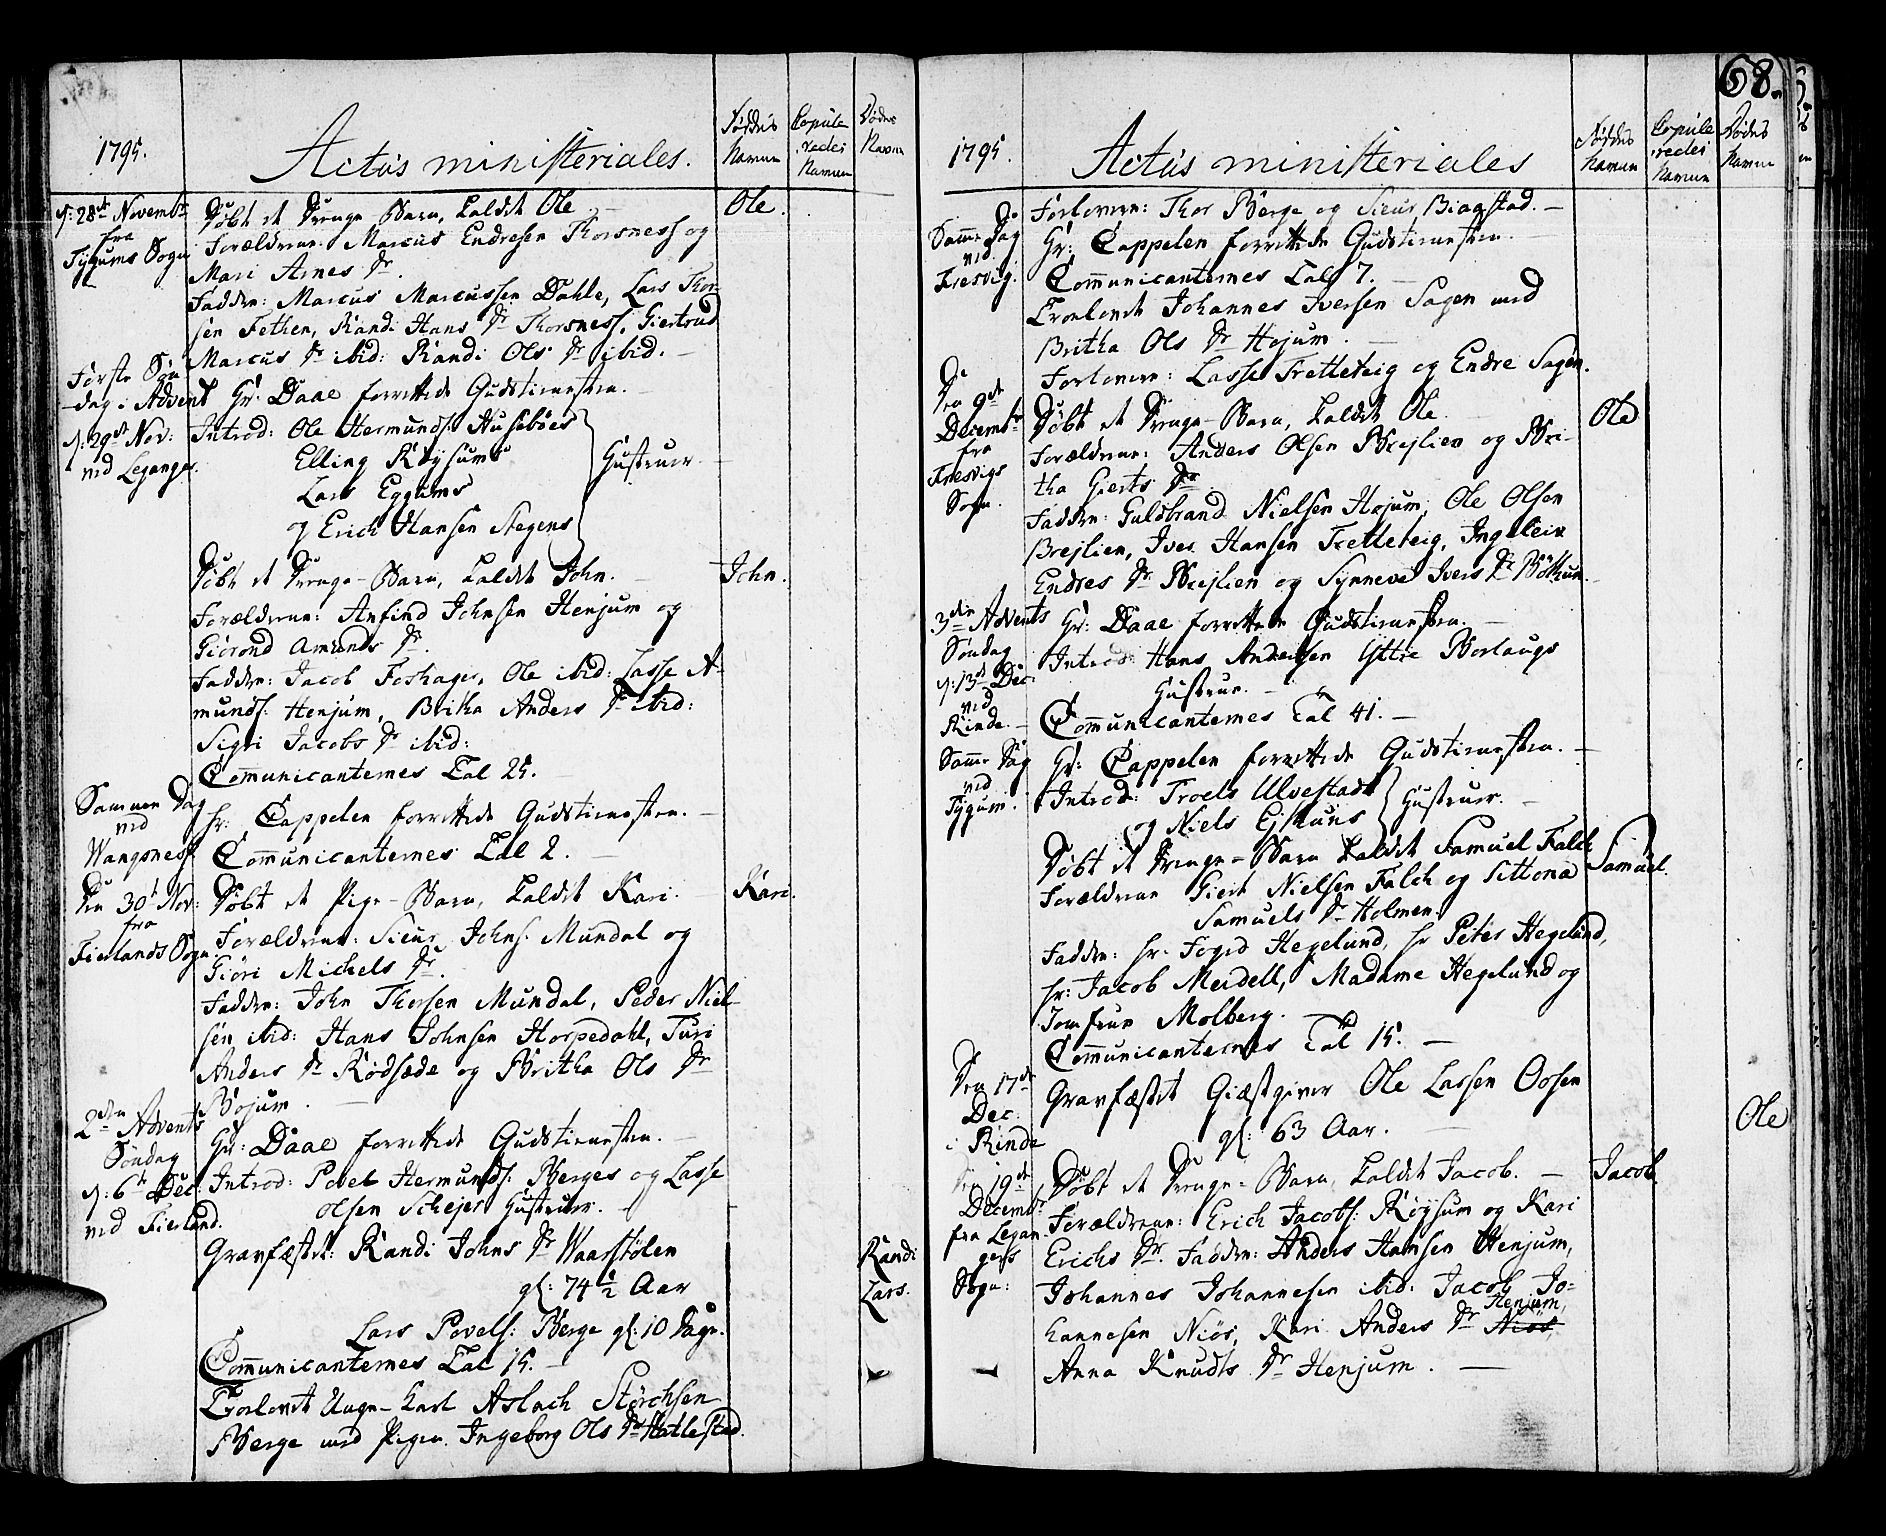 1795.
Actus ministeriales.
Fødtes Navne
Copuleredes Navne
Dødes Navne
d: 28de Novembr
fra
Tygums Sogn
Døbt et Drenge-Barn, kaldet Ole
Ole.
Forældrene: Marcus Endresen Thorsness og
Mari Arnes Dr.
Faddere: Marcus Marcussen Dahle, Lars Thor-
sen Fethen, Randi Hans Dr Thorsness. Giertrud
Marcus Dr ibid: Randi Ols Dr ibid.
Første Søn-
dag i Advent
d: 29de Nov:
ved Leganger.
Hr: Daae forrettede Gudstienesten.
Introd: Ole Hermunds: Husebøes
Elling Røysums
Lars Eggums
og Erich Hansen Stegens
Hustruer.
Døbt et Drenge-Barn, kaldet John.
John.
Forældrene: Anfind Johnsen Henjum og
Giørond Amunds Dr.
Faddere: Jacob Foshager, Ole ibid: Lasse A-
munds: Henjum, Britha Anders Dr ibid:
Sigri Jacobs Dr ibid:
Communicanternes Tal 25.
Sammen Dag
ved
Wangsness
hr: Cappelen forrettede Gudstienesten.
Communicanternes Tal 2.
Den 30t Nov:
fra
Fierlands Sogn
Døbt et Pige-Barn, kaldet Kari.
Kari.
Forældrene: Sieur Johns: Mundal og
Giøri Michels Dr.
Faddere: John Thorsen Mundal, Peder Niel-
sen ibid: Hans Johnsen Horpedahl, Turi
Anders Dr Rødsæde og Britha Ols Dr
Bojum.
2den Advents
Søndag
d: 6t Dec:
ved Fierland.
Hr: Daae forrettede Gudstienesten.
Introd: Povel Hermunds: Berges og Lasse
Olsen Schejes Hustruer.
Gravfæstet: Randi Johns Dr Waarstølen
gl: 74 1/2 Aar
Randi
Lars Povels: Berge gl: 10 Dage.
Lars.
Communicanternes Tal 15.
Trolovet Unge-Karl Aslach Størchsen
Berge med Pigen Ingeborg Ols Dr Hatlestad.
68.
1795.
Actus ministeriales
Fødtes Navne
Copuleredes Navne
Dødes Navne
Forlovere: Thor Berge og Sieur Biagstad.
Samme Dag
ved
Fresvig.
Hr: Cappelen forrettede Gudstienesten.
Communicanternes Tal 7.
Trolovet Johannes Iversen Sagen med
Britha Ols Dr Hojum.
Forlovere: Lasse Tretteteig og Endre Sagen.
Den 9de
Decembr
fra
Fresvigs
Sogn.
Døbt et Drenge-Barn, kaldet Ole.
Ole
Forældrene: Anders Olsen Brejlien og Bri-
tha Gierts Dr.
Faddere: Guldbrand Nielsen Hojum, Ole Olsen
Brejlien, Iver Hansen Tretteteig, Ingeleiv
Endres Dr Brejlien og Synneve Ivers Dr Bøthun.
3die Advents
Søndag
d: 13de Dec:
ved
Rinde.
Hr: Daae forrettede Gudstienesten.
Introd: Hans Andersen Yttre Borlaugs
Hustrue.
Communicanternes Tal 41.
Samme Dag
ved
Tygum.
Hr: Cappelen forrettede Gudstienesten.
Introd: Troels Ulvestads
og Niels Ejthuns
Hustruer.
Døbt et Drenge-Barn kaldet Samuel Falch
Samuel.
Forældrene Giert Nielsen Falch og Sittona
Samuels Dr Holmen.
Faddere: hr: Foged Hegelund, hr Peter Hegelund,
hr: Jacob Meidell, Madame Hegelund og
Jomfrue Molberg.
Communicanternes Tal 15.
Den 17de
Dec:
i Rinde
Gravfæstet Giæstgiver Ole Larsen Orsen
gl: 63 Aar.
Ole
Den 19de
Decembr
fra Legan-
gers
Sogn:
Døbt et Drenge-Barn, kaldet Jacob.
Jacob
Forældrene: Erich Jacobs: Røysum og Kari
Erichs Dr. Faddere: Anders Hansen Henjum,
Johannes Johannesen ibid: Jacob Jo-
hannesen Niøs, Kari Anders Dr Niøs, Henjum,
Anna Knudts Dr Henjum.